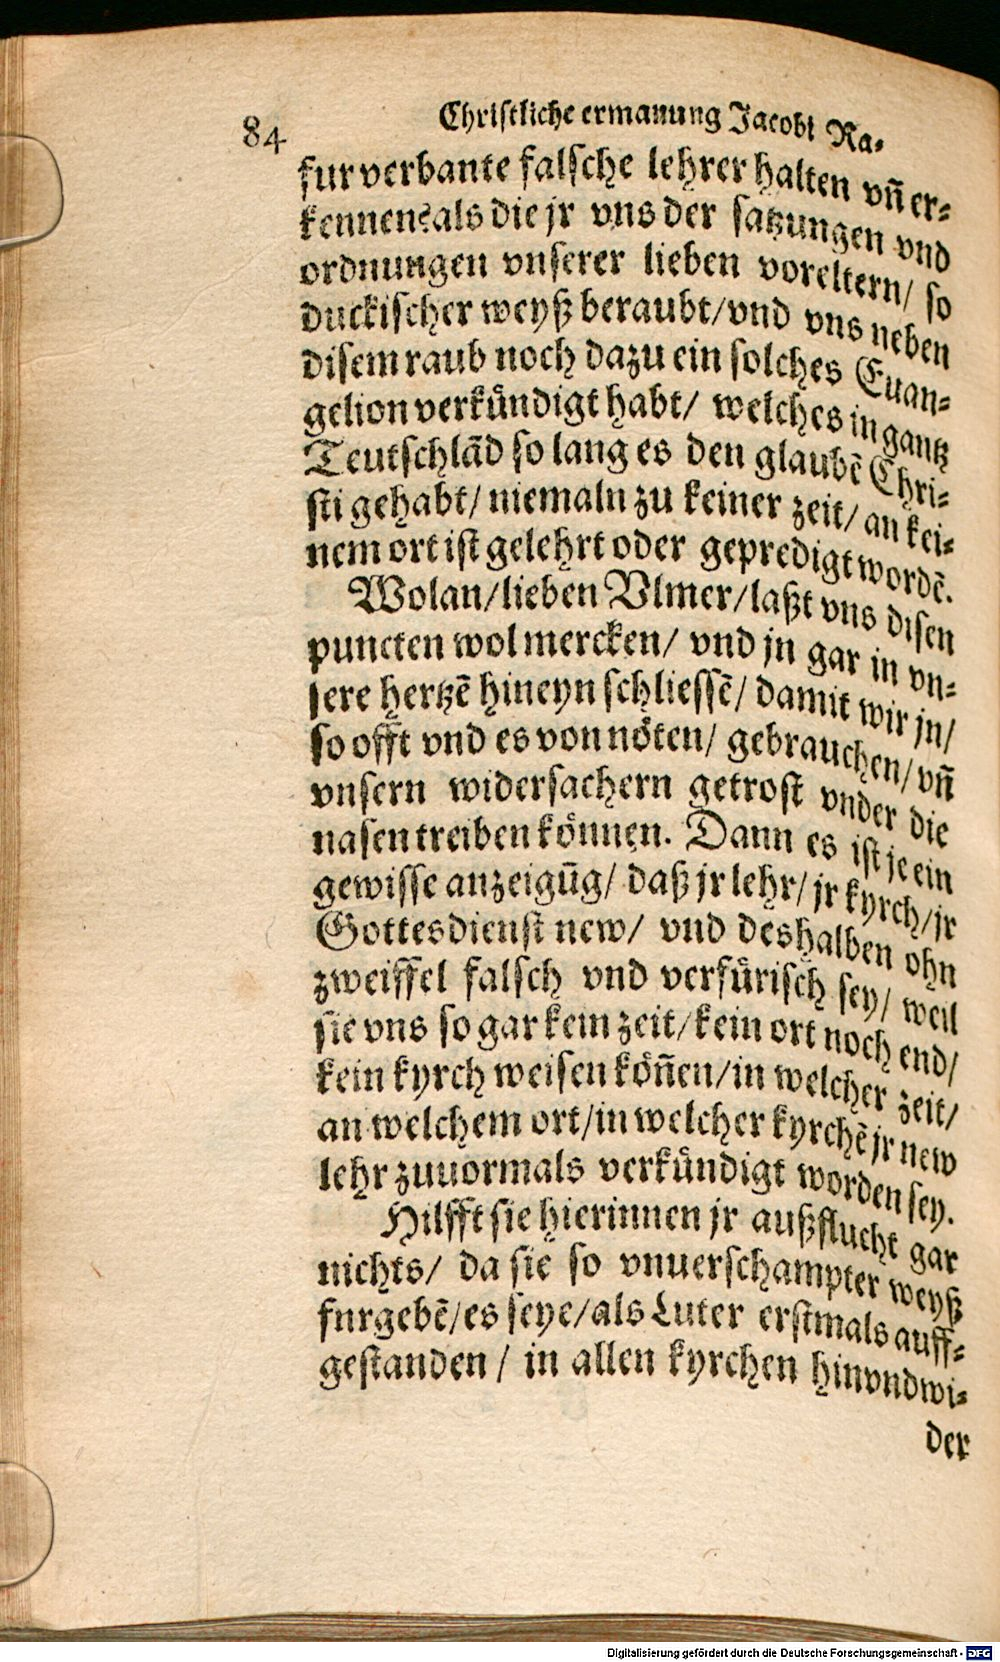 84
Christliche ermanung Jacobi Ra-
fur verbante falsche lehrer halten vñ er-
kennen? als die jr vns der satzungen vnd
ordnungen vnserer lieben voreltern/ so
duckischer weyß beraubt/ vnd vns neben
disem raub noch dazu ein solches Euan-
gelion verkündigt habt/ welches in gantz
Teutschlād so lang es den glaubē Chri-
sti gehabt/ niemaln zu keiner zeit/ an kei-
nem ort ist gelehrt oder gepredigt wordē.
Wolan/ lieben Vlmer/ laßt vns disen
puncten wol mercken/ vnd jn gar in vn-
sere hertzē hineyn schliessē/ damit wir jn/
so offt vnd es von nöten/ gebrauchen/ vñ
vnsern widersachern getrost vnder die
nasen treiben können. Dann es ist je ein
gewisse anzeigūg/ daß jr lehr/ jr kyrch/ jr
Gottesdienst new/ vnd deshalben ohn
zweiffel falsch vnd verfürisch sey/ weil
sie vns so gar kein zeit/ kein ort noch end/
kein kyrch weisen köñen/ in welcher zeit/
an welchem ort/ in welcher kyrchē jr new
lehr zuuormals verkündigt worden sey.
Hilfft sie hierinnen jr außflucht gar
nichts/ da sie so vnuerschampter weyß
furgebē/ es seye/ als Luter erstmals auff-
gestanden/ in allen kyrchen hin vnd wi-
der
Digitalisierung gefördert durch die Deutsche Forschungsgemeinschaft - DFG